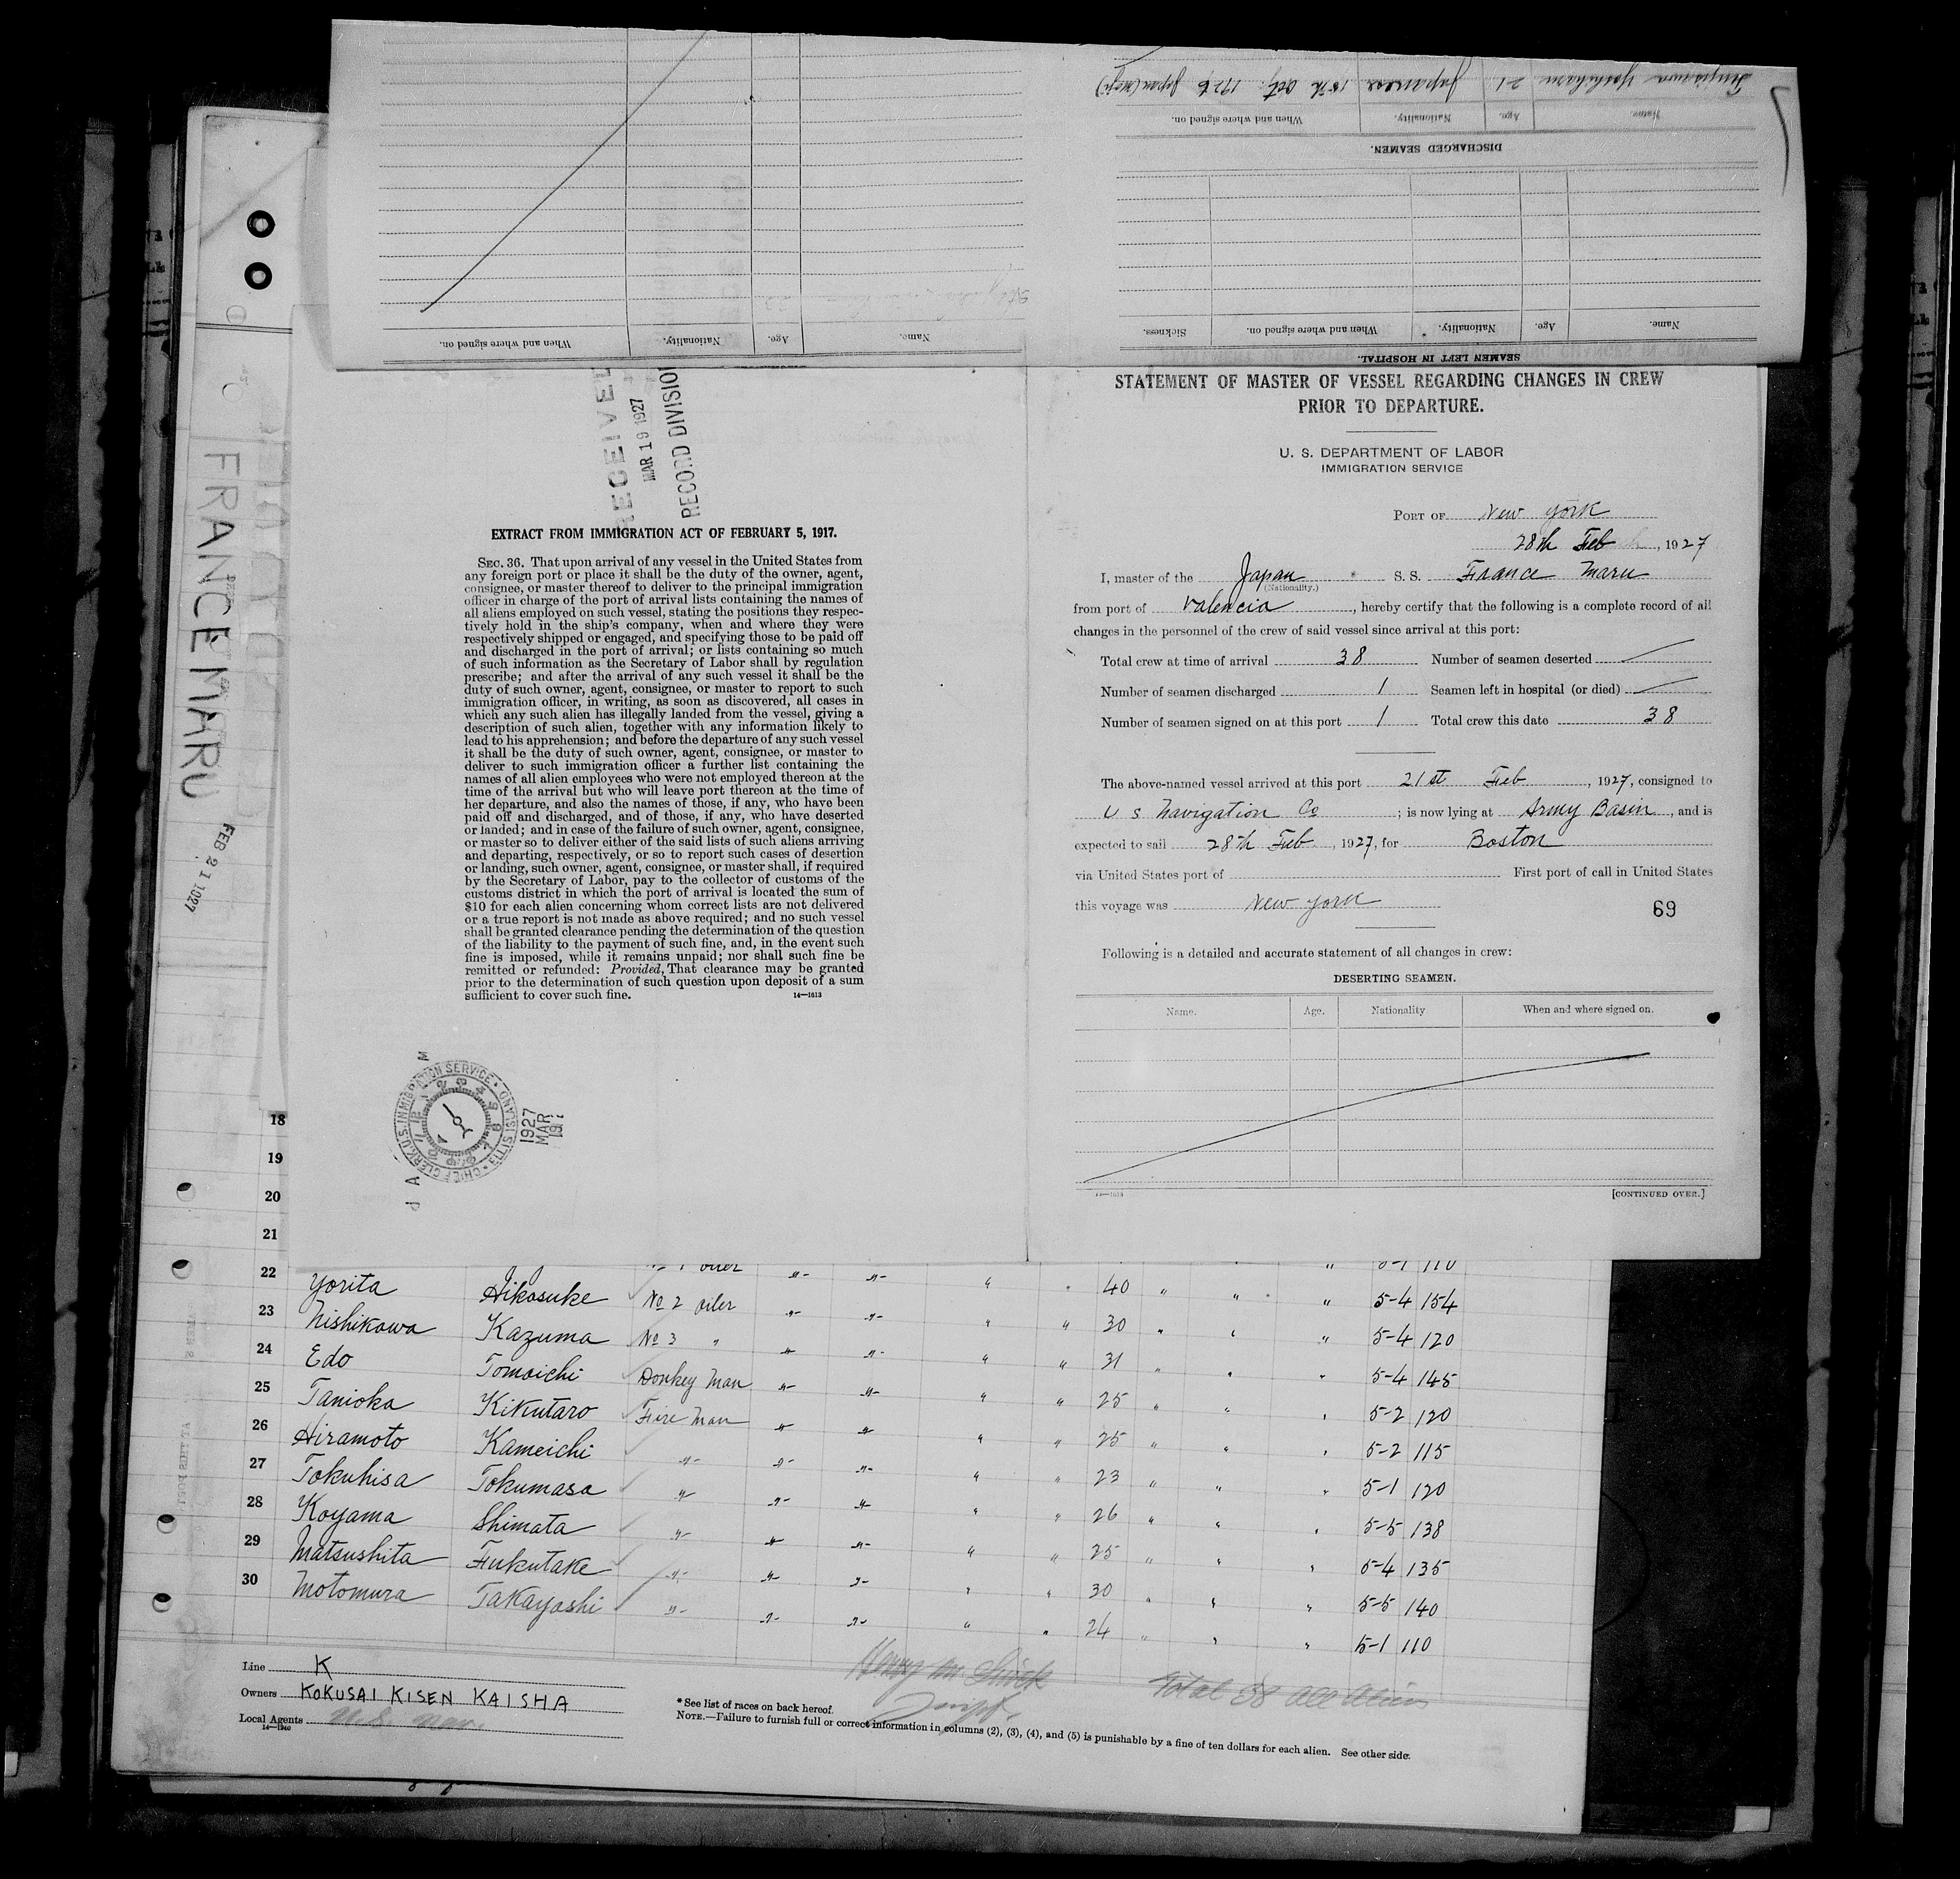 Fujisawa Yoshiharu 21 Japanese 18th Oct. 1926 Japan (Moji)
Name. Age. Nationality. When and where signed on.
DISCHARGED SEAMEN.
Name. Age. Nationality. When and where signed on. Sickness.
SEAMEN LEFT IN HOSPITAL.
Name. Age. Nationality. When and where signed on.
FRANCE MARU
FEB 21 1927
RECEIVED
MAR 19 1927
RECORD DIVISION
EXTRACT FROM IMMIGRATION ACT OF FEBRUARY 5, 1917.
SEC. 36. That upon arrival of any vessel in the United States from
any foreign port or place it shall be the duty of the owner, agent,
consignee, or master thereof to deliver to the principal immigration
officer in charge of the port of arrival lists containing the names of
all aliens employed on such vessel, stating the positions they respec-
tively hold in the ship's company, when and where they were
respectively shipped or engaged, and specifying those to be paid off
and discharged in the port of arrival; or lists containing so much
of such information as the Secretary of Labor shall by regulation
prescribe; and after the arrival of any such vessel it shall be the
duty of such owner, agent, consignee, or master to report to such
immigration officer, in writing, as soon as discovered, all cases in
which any such alien has illegally landed from the vessel, giving a
description of such alien, together with any information likely to
lead to his apprehension; and before the departure of any such vessel
it shall be the duty of such owner, agent, consignee, or master to
deliver to such immigration officer a further list containing the
names of all alien employees who were not employed thereon at the
time of the arrival but who will leave port thereon at the time of
her departure, and also the names of those, if any, who have been
paid off and discharged, and of those, if any, who have deserted
or landed; and in case of the failure of such owner, agent, consignee,
or master so to deliver either of the said lists of such aliens arriving
and departing, respectively, or so to report such cases of desertion
or landing, such owner, agent, consignee, or master shall, if required
by the Secretary of Labor, pay to the collector of customs of the
customs district in which the port of arrival is located the sum of
$10 for each alien concerning whom correct lists are not delivered
or a true report is not made as above required; and no such vessel
shall be granted clearance pending the determination of the question
of the liability to the payment of such fine, and, in the event such
fine is imposed, while it remains unpaid; nor shall such fine be
remitted or refunded: Provided, That clearance may be granted
prior to the determination of such question upon deposit of a sum
sufficient to cover such fine. 14—1613
CHIEF CLERK, U.S. IMMIGRATION SERVICE • ELLIS ISLAND
1927
MAR
STATEMENT OF MASTER OF VESSEL REGARDING CHANGES IN CREW
PRIOR TO DEPARTURE.
U. S. DEPARTMENT OF LABOR
IMMIGRATION SERVICE
PORT OF New York
28th Feb, 1927
I, master of the Japan S. S. France Maru
(Nationality.)
from port of Valencia, hereby certify that the following is a complete record of all
changes in the personnel of the crew of said vessel since arrival at this port:
Total crew at time of arrival 38 Number of seamen deserted
Number of seamen discharged 1 Seamen left in hospital (or died)
Number of seamen signed on at this port 1 Total crew this date 38
The above-named vessel arrived at this port 21st Feb, 1927, consigned to
U S Navigation Co; is now lying at Army Basin, and is
expected to sail 28th Feb, 1927, for Boston
via United States port of First port of call in United States
this voyage was New York
69
Following is a detailed and accurate statement of all changes in crew:
DESERTING SEAMEN.
Name. Age. Nationality When and where signed on.
14—1613 [CONTINUED OVER.]
18
19
20
21
No 1 oiler " " " " 5-1 110
22 Yorita Hikosuke No 2 oiler " " " " 40 " " " 5-4 154
23 Nishikawa Kazuma No 3 " " " " " 30 " " " 5-4 120
24 Edo Tomoichi Donkey Man " " " " 31 " " " 5-4 145
25 Tanioka Kikutaro Fire Man " " " " 25 " " " 5-2 120
26 Hiramoto Kameichi " " " " " 25 " " " 5-2 115
27 Tokuhisa Tokumasa " " " " " 23 " " " 5-1 120
28 Koyama Shimata " " " " " 26 " " " 5-5 138
29 Matsushita Fukutake " " " " " 25 " " " 5-4 135
30 Motomura Takayoshi " " " " " 30 " " " 5-5 140
24 " " " 5-1 110
Line K
Owners KOKUSAI KISEN KAISHA
Local Agents U.S. Nav.
14—1240
Total 38 all Aliens
* See list of races on back hereof.
NOTE.—Failure to furnish full or correct information in columns (2), (3), (4), and (5) is punishable by a fine of ten dollars for each alien. See other side.